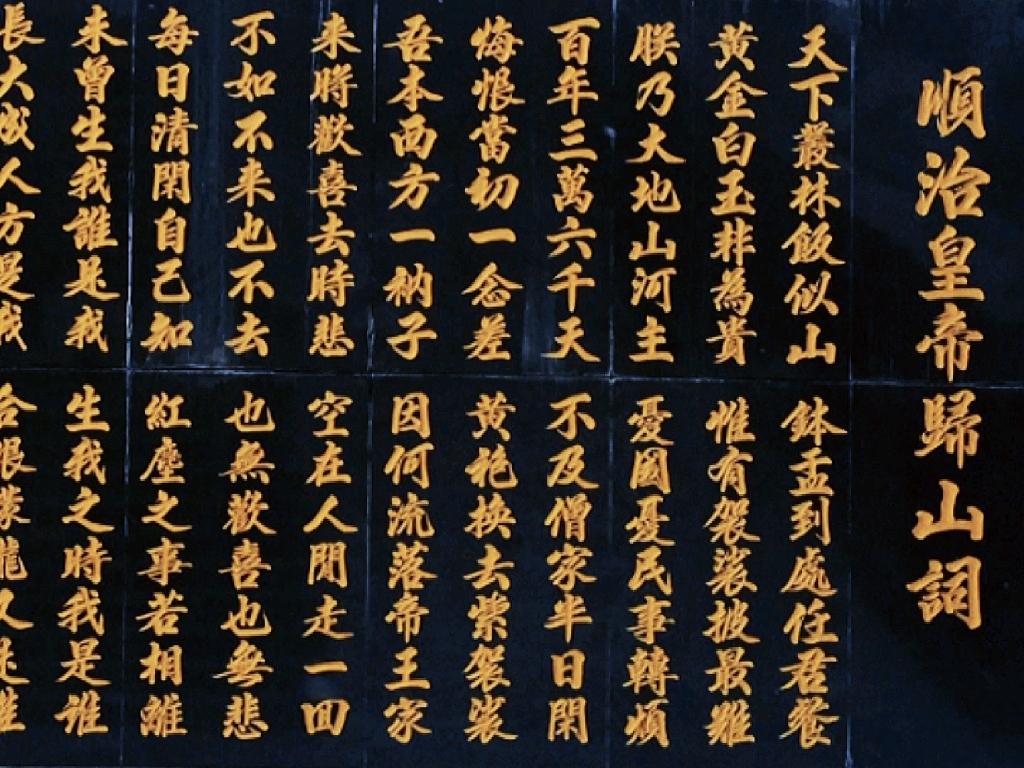 順治皇帝歸山詞
天下叢林飯似山 鉢盂到處任君餐
黃金白玉非為貴 惟有袈裟披最難
朕乃大地山河主 憂國憂民事轉煩
百年三萬六千天 不及僧家半日閑
悔恨當初一念差 黃袍換去紫袈裟
吾本西方一衲子 因何流落帝王家
来時歡喜去時悲 空在人間走一回
不如不来也不去 也無歡喜也無悲
每日清閑自己知 紅塵之事若相離
未曾生我誰是我 生我之時我是誰
長大成人方是我 合眼朦朧又是誰